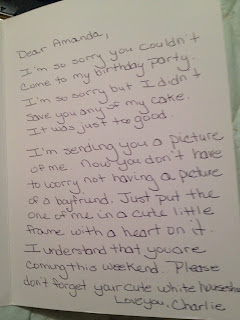 Dear Amanda,
I'm so sorry you couldn't
come to my birthday party.
I'm so sorry but I didn't
save you any of my cake.
It was just too good.
I'm sending you a picture
of me now you don't have
to worry not having a picture
of a boyfriend. Just put the
one of me in a cute little
frame with a heart on it.
I understand that you are
coming this weekend. Please
don't forget your cute white
Love you, Charlie